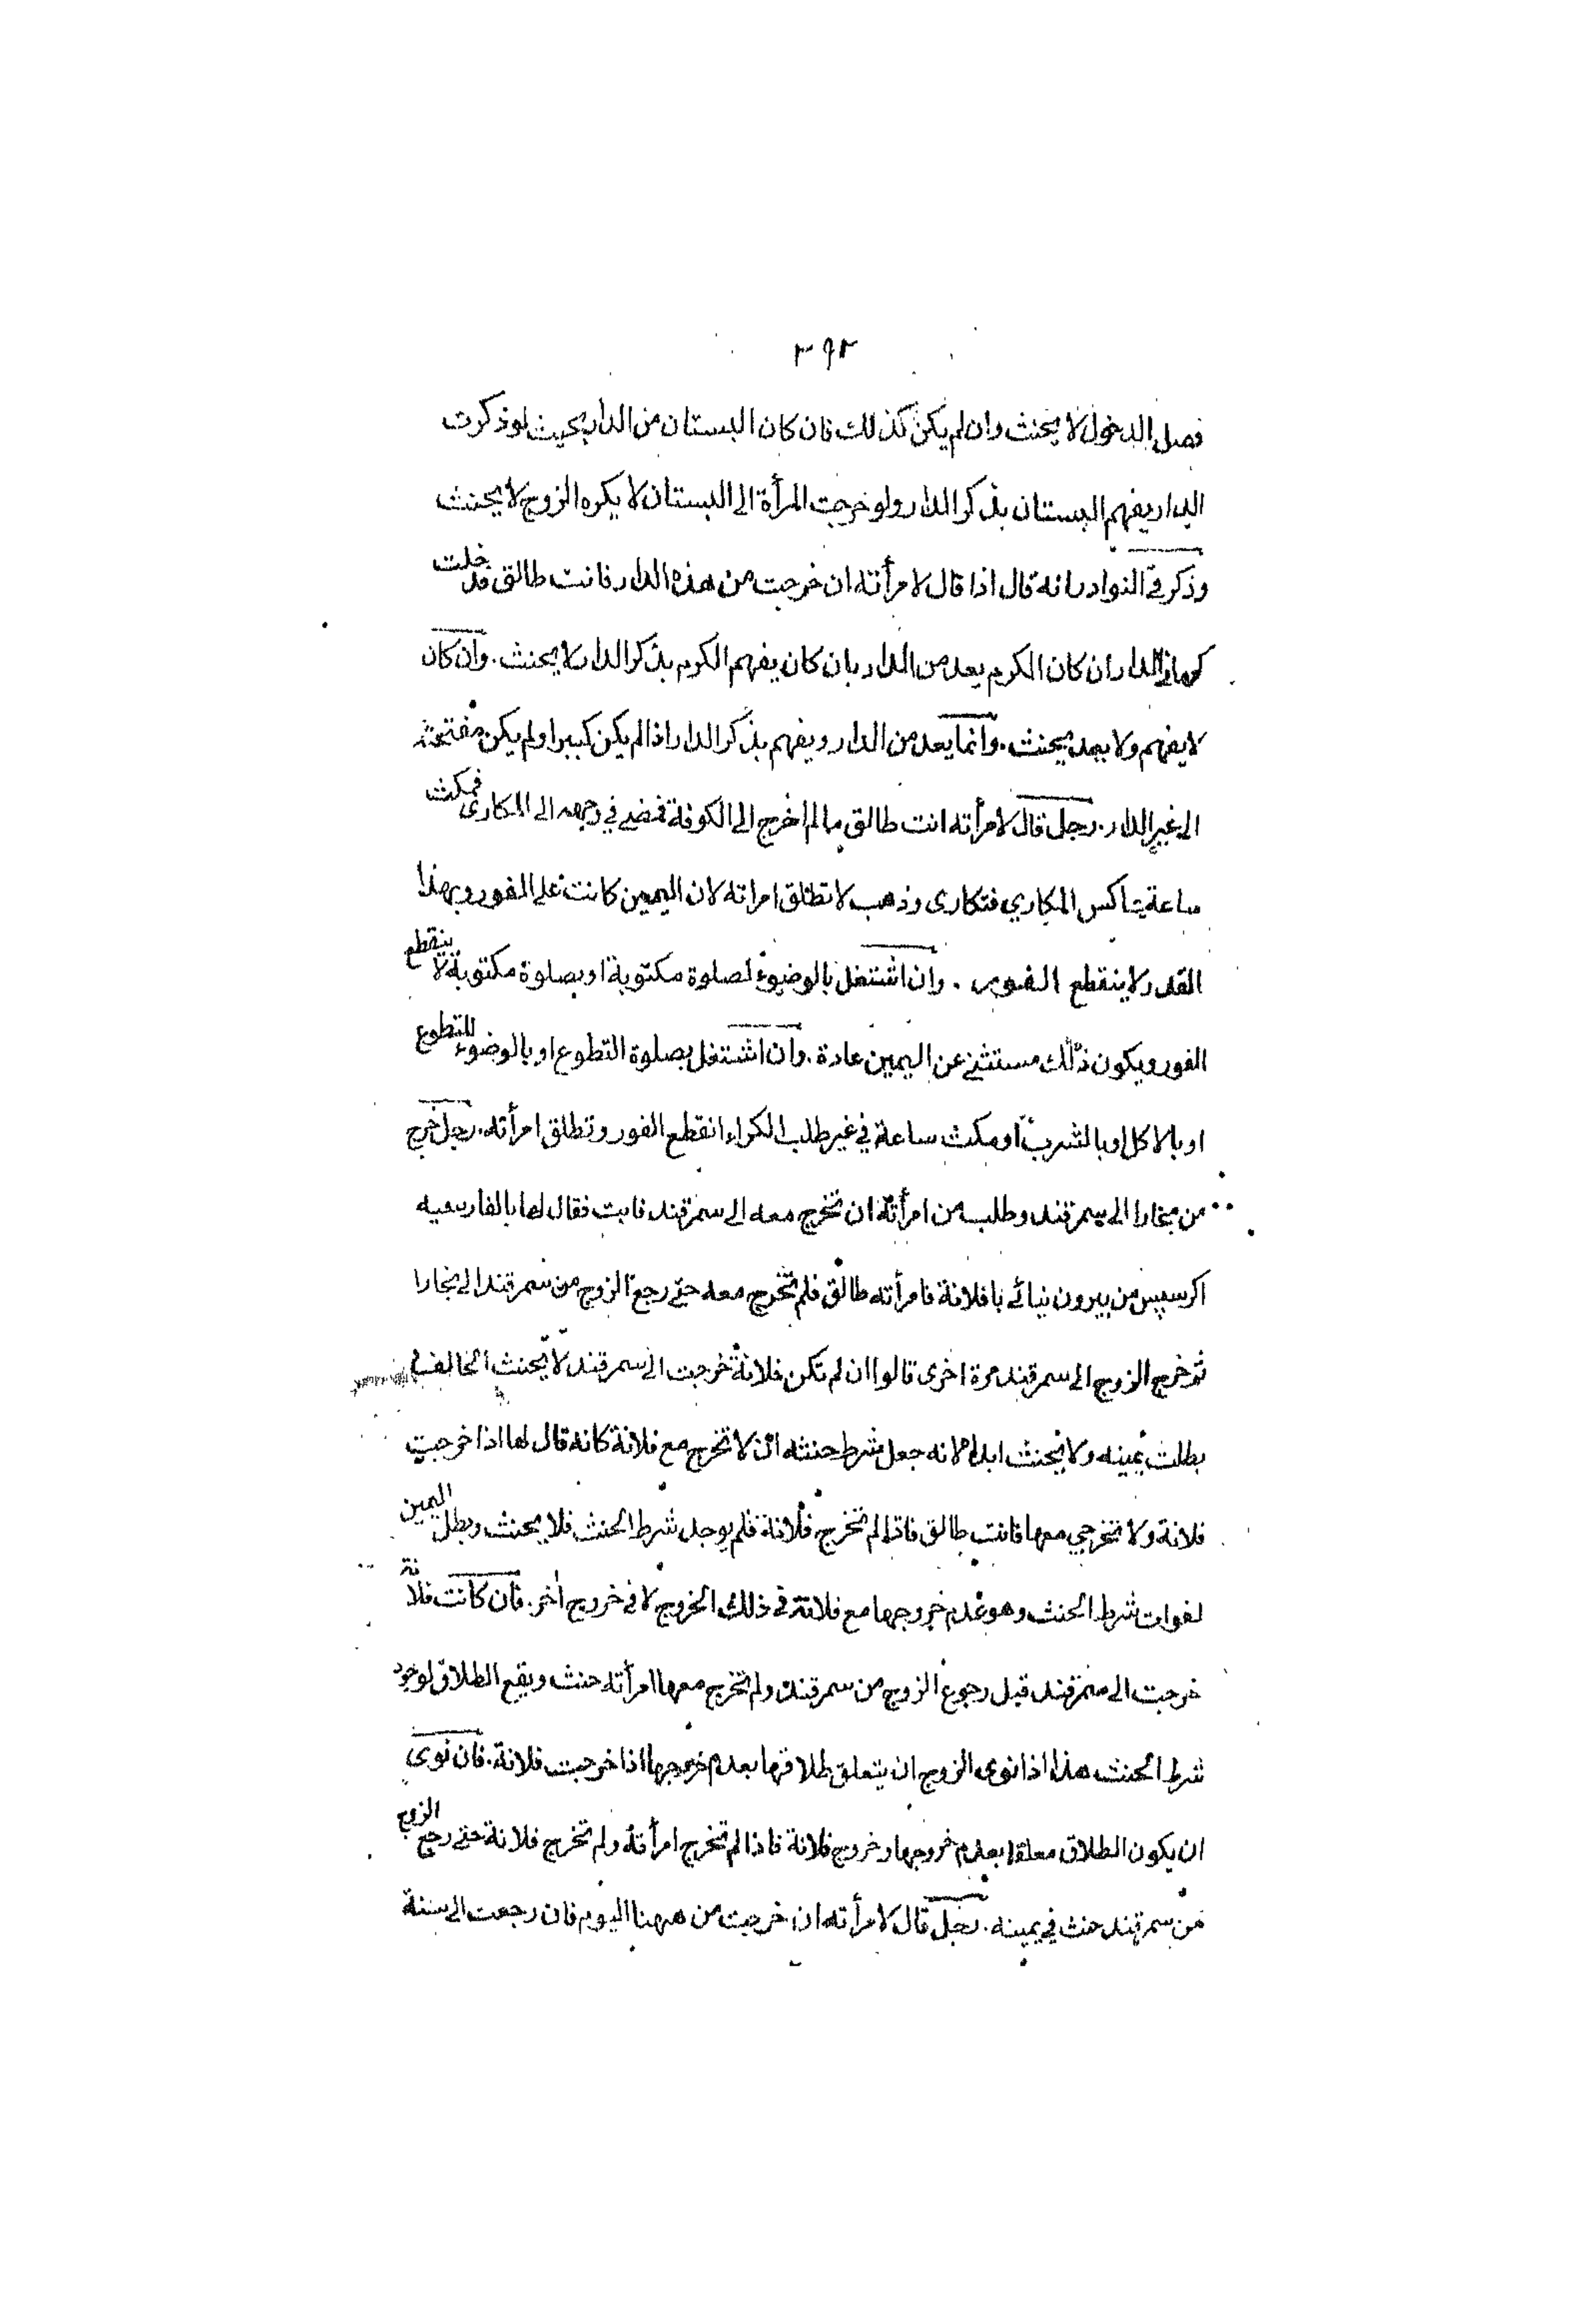 ٣٩٢
فصل الدخول لا يحنث وان لم يكن كذلك فان كان البستان من الدار بحيث لو ذكرت
الدار يفهم البستان بذكر الدار ولو خرجت المرأة الى البستان لا يكره الزوج لا يحنث
وذكر في النوادر انه قال اذا قال لامرأته ان خرجت من هذه الدار فانت طالق فدخلت
كرما في الدار ان كان الكرم يعد من الدار بان كان يفهم الكرم بذكر الدار لا يحنث. وان كان
لا يفهم ولا يعد يحنث. وانما يعد من الدار ويفهم بذكر الدار اذا لم يكن كبيرا ولم يكن مفتحه
الى غير الدار. رجل قال لامرأته انت طالق ما لم اخرج الى الكوفة فمضى في وجهه الى المكارى فمكث
ساعة يماكس المكاري فتكارى وذهب لا تطلق امراته لان اليمين كانت على الفور وبهذا
القدر لا ينقطع الفور. وان اشتغل بالوضوء لصلوة مكتوبة او بصلوة مكتوبة لا ينقطع
الفور ويكون ذلك مستثنى عن اليمين عادة. وان اشتغل بصلوة التطوع او بالوضوء للتطوع
او بالاكل او بالشرب او مكث ساعة في غير طلب الكراء انقطع الفور وتطلق امرأته. رجل خرج
من بخارا الى سمرقند وطلب من امرأته ان تخرج معه الى سمرقند فابت فقال لها بالفارسيه
اكر سپس من بيرون نيائے با فلانة فامرأته طالق فلم تخرج معه حتى رجع الزوج من سمرقند الى بخارا
ثم خرج الزوج الى سمرقند مرة اخرى قالوا ان لم تكن فلانة خرجت الى سمرقند لا يحنث الحالف في
بطلت يمينه ولا يحنث ابدا لانه جعل شرط حنثه ان لا تخرج مع فلانة كانه قال لها اذا خرجت
فلانة ولا تخرجي معها فانت طالق فاذا لم تخرج فلانة فلم يوجد شرط الحنث فلا يحنث وبطل اليمين
لفوات شرط الحنث وهو عدم خروجها مع فلانة في ذلك الخروج لا في خروج اخر. فان كانت فلانة
خرجت الى سمرقند قبل رجوع الزوج من سمرقند ولم تخرج معها امرأته حنث ويقع الطلاق لوجود
شرط الحنث هذا اذا نوى الزوج ان يتعلق طلاقها بعدم خروجها اذا خرجت فلانة. فان نوى
ان يكون الطلاق معلقا بعدم خروجها وخروج فلانة فاذا لم تخرج امرأته ولم تخرج فلانة حتى رجع الزوج
من سمرقند حنث في يمينه. رجل قال لامرأته ان خرجت من ههنا اليوم فان رجعت الى سنة